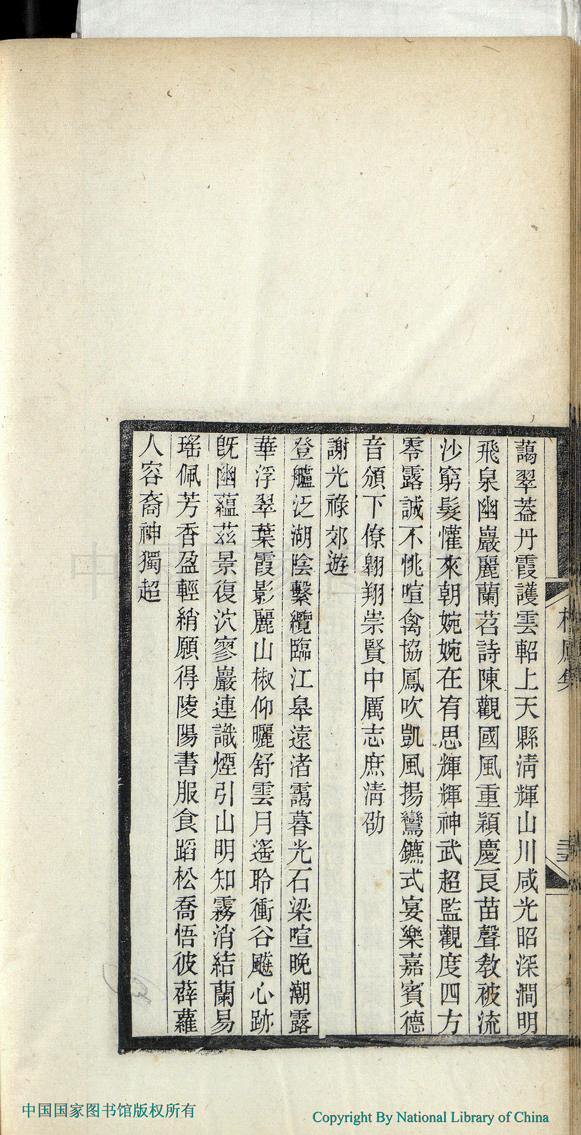 藹翠葢丹霞護雲軺上天縣淸輝山川咸光昭深澗明
飛泉幽巖麗蘭苕詩陳觀國風重穎慶良苗聲敎被流
沙窮髮懽來朝婉婉在宥思輝輝神武超監觀度四方
零露誠不恌喧禽協鳳吹凱風揚鸞鑣式宴樂嘉賓德
音頒下僚翺翔崇賢中厲志庶淸劭
謝光祿郊遊
登艫泛湖陰繫纜臨江皋遠渚靄暮光石梁喧晚潮露
華浮翠葉霞影麗山椒仰曬舒雲月遙聆衝谷飈心跡
旣幽蘊茲景復泬寥巖連識煙引山明知霧消結蘭易
瑤佩芳香盈輕綃願得陵陽書服食蹈松喬悟彼薜蘿
人容裔神獨超
中国国家图书馆版权所有
Copyright By National Library of China